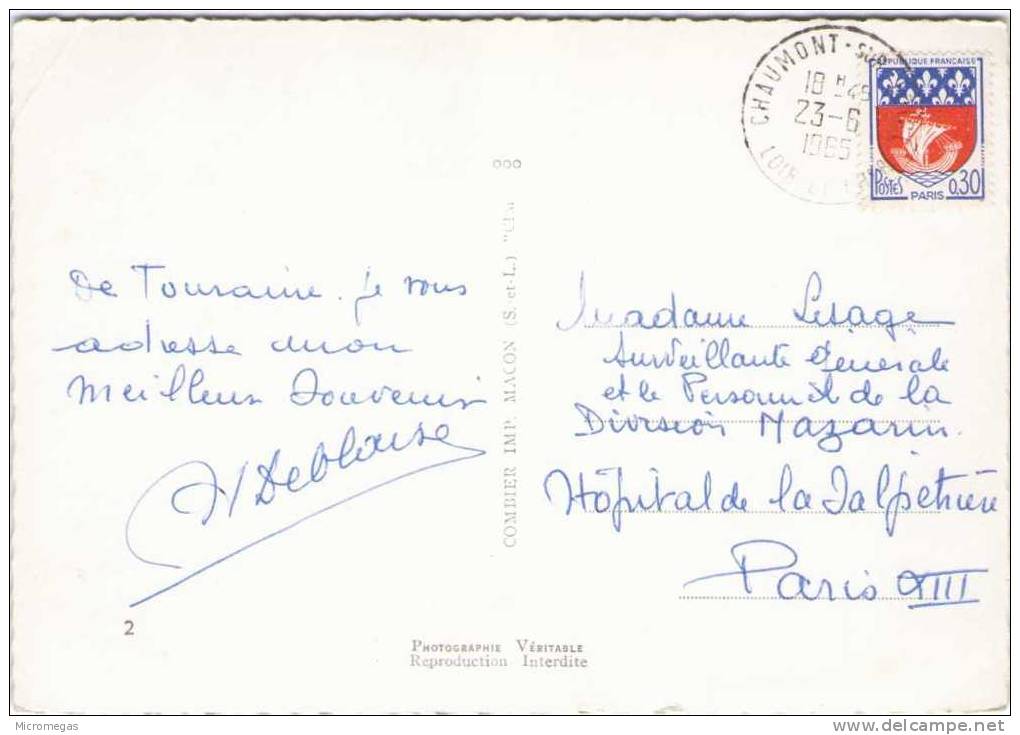 CHAUMONT-SUR
18 H 45
23-6
1965
LOIR ET
REPUBLIQUE FRANÇAISE
POSTES
0,30
PARIS
De Touraine. je vous
adresse mon
meilleur souvenir
Deblaise
Madame Lesage
Surveillante Generale
et le Personnel de la
Division Mazarin.
Hôpital de la Salpêtrière
Paris XIII
COMBIER IMP. MACON (S.-et-L.) "CIM
2
PHOTOGRAPHIE VÉRITABLE
Reproduction Interdite
Micromegas
www.delcampe.net